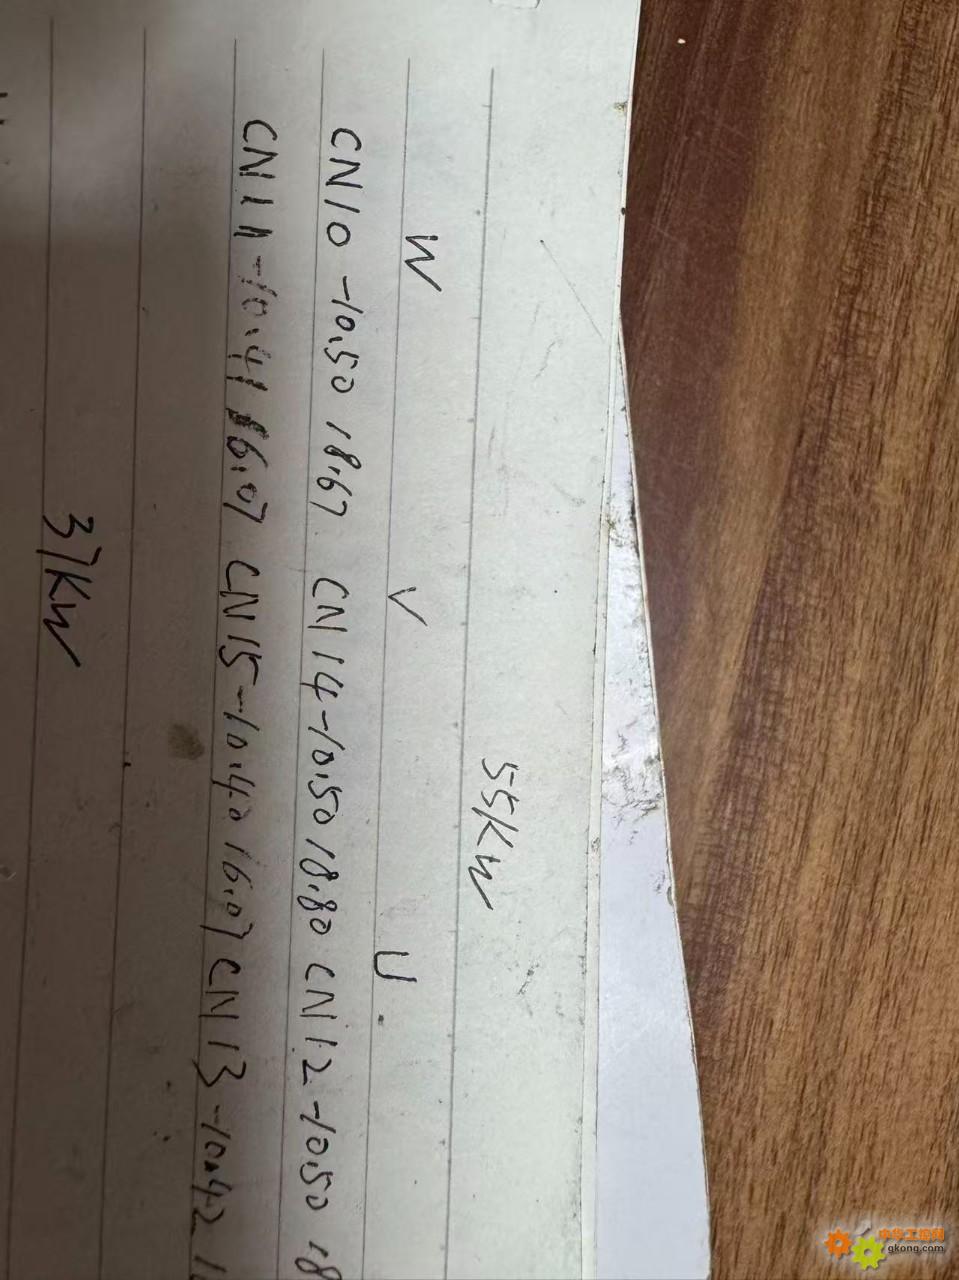 55KW
W V U
CN10 -10.50 18.67 CN14 -10.50 18.80 CN12 -10.50 18
CN11 -10.41 16.07 CN15 -10.40 16.07 CN13 -10.42 1
37KW
中华工控网
gkong.com